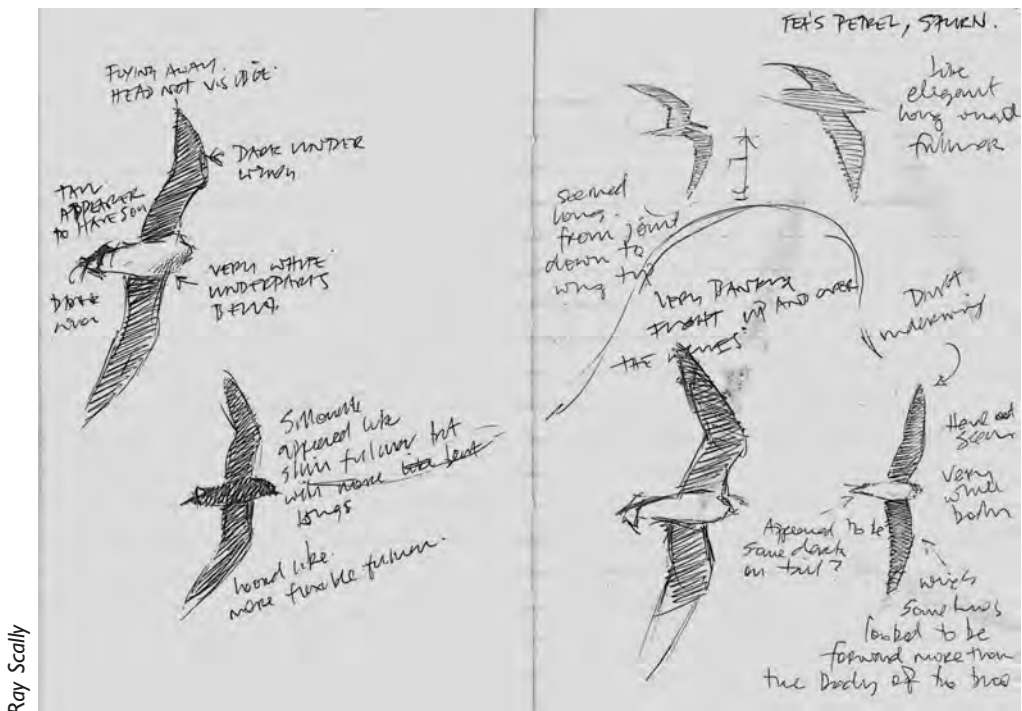 FLYING AWAY.
HEAD NOT VISIBLE.
DARK UNDER
WING
TAIL
APPEARED
TO HAVE SOME
DARK
VERY WHITE
UNDERPARTS
BELLY.
Silhouette
appeared like
slim fulmar but
with more like bent
wings
looked like
more flexible fulmar.
FEA'S PETREL, STURN.
like
elegant
long winged
fulmar
seemed
long.
from joint
down to
wing tip
VERY BANKING
FLIGHT UP AND OVER
THE WAVES.
Dark
underwing
Head not
seen
very
white
body
Appeared to be
some dark
on tail?
wings
sometimes
looked to be
forward more than
the body of the bird
Ray Scally